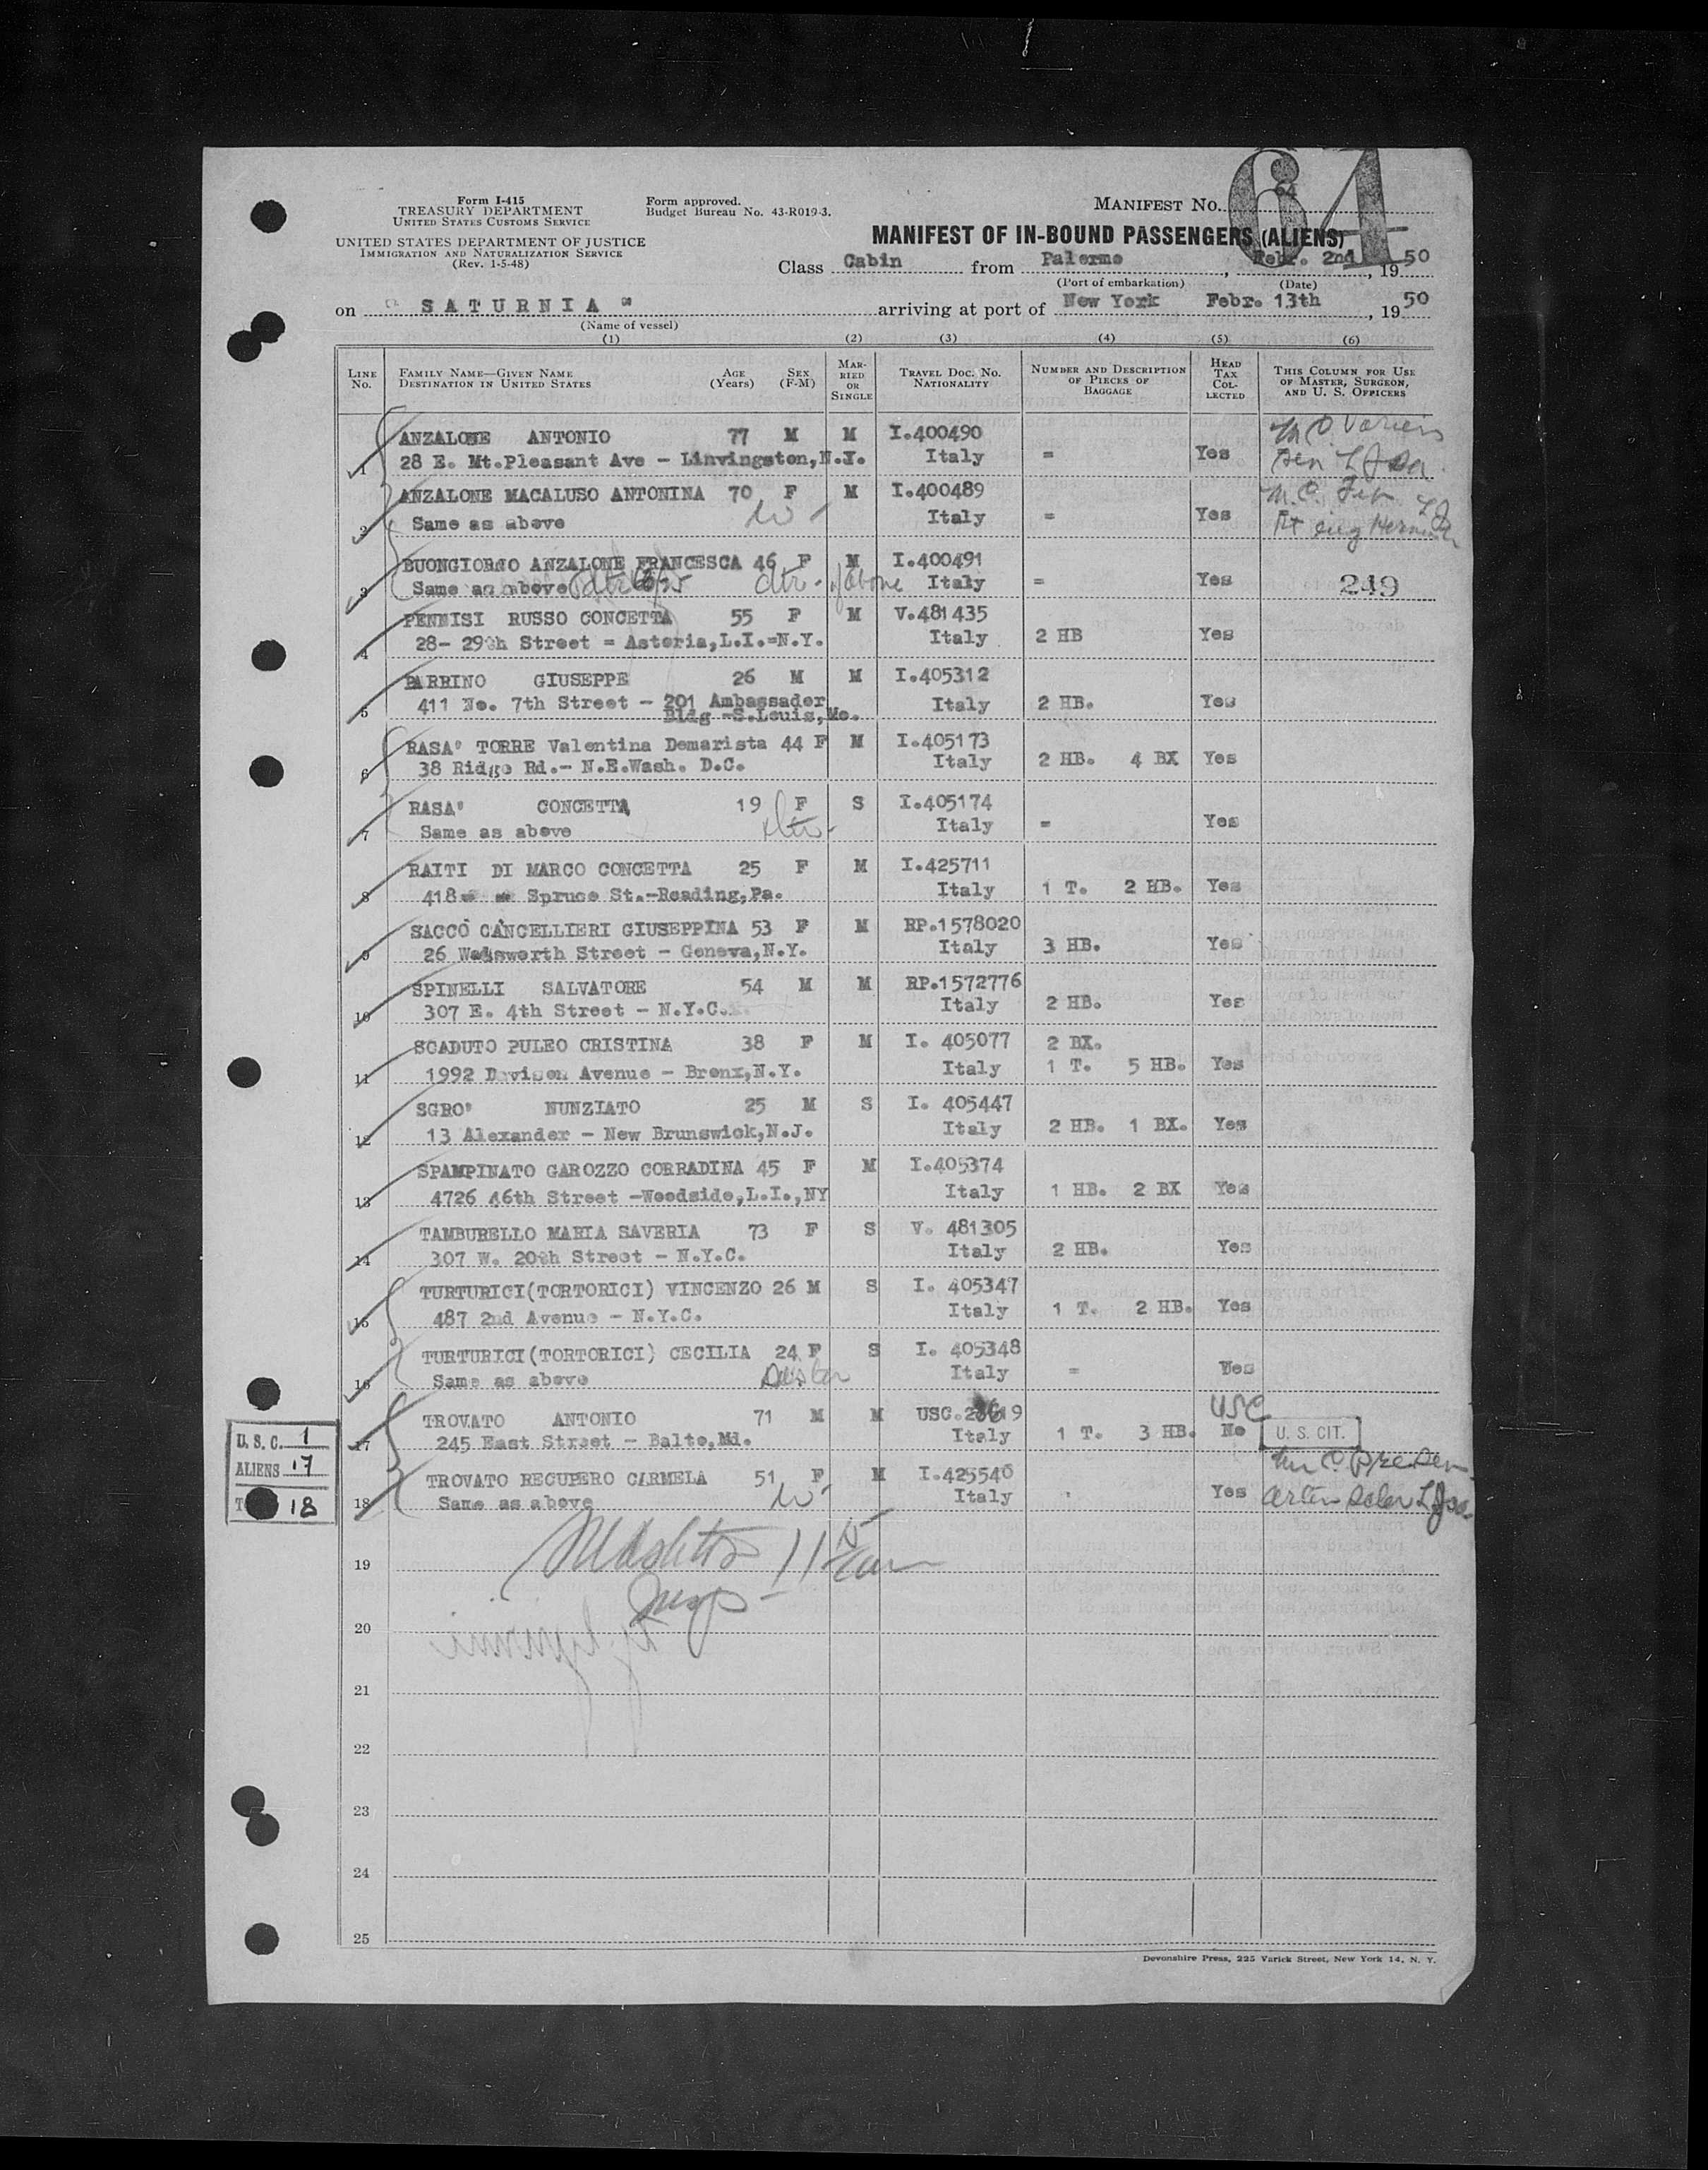 64
Form I-415
TREASURY DEPARTMENT
UNITED STATES CUSTOMS SERVICE
UNITED STATES DEPARTMENT OF JUSTICE
IMMIGRATION AND NATURALIZATION SERVICE
(Rev. 1-5-48)
Form approved.
Budget Bureau No. 43-R019-3.
MANIFEST No. 64
MANIFEST OF IN-BOUND PASSENGERS (ALIENS)
Class Cabin from Palermo, Febr. 2nd, 1950
(Port of embarkation) (Date)
on "SATURNIA" arriving at port of New York Febr. 13th, 1950
(Name of vessel)
(1) (2) (3) (4) (5) (6)
LINE No. FAMILY NAME—GIVEN NAME DESTINATION IN UNITED STATES AGE (Years) SEX (F-M) MARRIED OR SINGLE TRAVEL DOC. NO. NATIONALITY NUMBER AND DESCRIPTION OF PIECES OF BAGGAGE HEAD TAX COLLECTED THIS COLUMN FOR USE OF MASTER, SURGEON, AND U. S. OFFICERS
ANZALONE ANTONIO 77 M M I.400490
1 28 E. Mt.Pleasant Ave - Linvingston,N.Y. Italy = Yes
ANZALONE MACALUSO ANTONINA 70 F M I.400489
2 Same as above Italy = Yes
BUONGIORNO ANZALONE FRANCESCA 46 F M I.400491
3 Same as above dtr. of above Italy = Yes 249
PENNISI RUSSO CONCETTA 55 F M V.481435
4 28- 29th Street = Astoria,L.I.=N.Y. Italy 2 HB Yes
PARRINO GIUSEPPE 26 M M I.405312
5 411 No. 7th Street - 201 Ambassador Italy 2 HB. Yes
Bldg -S.Louis,Mo.
RASA' TORRE Valentina Demarista 44 F M I.405173
6 38 Ridge Rd.- N.E.Wash. D.C. Italy 2 HB. 4 BX Yes
RASA' CONCETTA 19 F S I.405174
7 Same as above dtr. Italy = Yes
RAITI DI MARCO CONCETTA 25 F M I.425711
8 418 Spruce St.-Reading,Pa. Italy 1 T. 2 HB. Yes
SACCO CANCELLIERI GIUSEPPINA 53 F M RP.1578020
9 26 Wadsworth Street - Geneva,N.Y. Italy 3 HB. Yes
SPINELLI SALVATORE 54 M M RP.1572776
10 307 E. 4th Street - N.Y.C. Italy 2 HB. Yes
SCADUTO PULEO CRISTINA 38 F M I. 405077 2 BX.
11 1992 Davison Avenue - Bronx,N.Y. Italy 1 T. 5 HB. Yes
SGRO' NUNZIATO 25 M S I. 405447
12 13 Alexander - New Brunswick,N.J. Italy 2 HB. 1 BX. Yes
SPAMPINATO GAROZZO CORRADINA 45 F M I.405374
13 4726 46th Street -Woodside,L.I.,NY Italy 1 HB. 2 BX Yes
TAMBURELLO MARIA SAVERIA 73 F S V. 481305
14 307 W. 20th Street - N.Y.C. Italy 2 HB. Yes
TURTURICI(TORTORICI) VINCENZO 26 M S I. 405347
15 487 2nd Avenue - N.Y.C. Italy 1 T. 2 HB. Yes
TURTURICI(TORTORICI) CECILIA 24 F S I. 405348
16 Same as above Sister Italy = Yes
TROVATO ANTONIO 71 M M USC. USC
17 245 East Street - Balto,Md. Italy 1 T. 3 HB. No U. S. CIT.
TROVATO RECUPERO CARMELA 51 F M I.425540
18 Same as above Italy Yes
U.S.C. 1
ALIENS 17
18
19
20
21
22
23
24
25
Devonshire Press, 225 Varick Street, New York 14, N. Y.